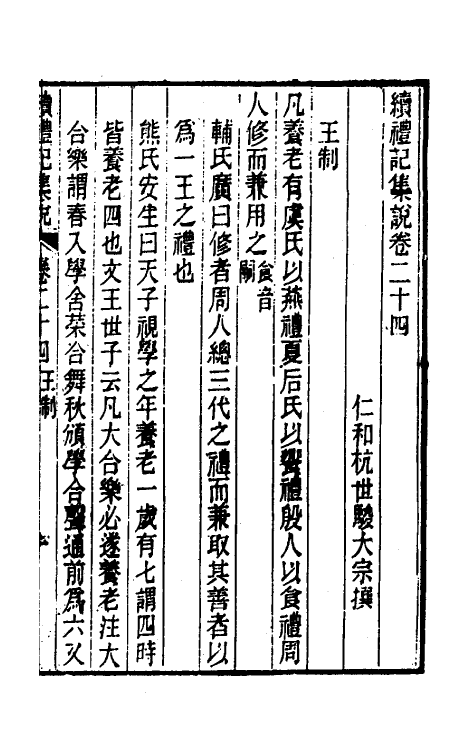 續禮記集說卷二十四
仁和杭世駿大宗撰
王制
凡養老有虞氏以燕禮夏后氏以饗禮殷人以食禮周
人修而兼用之食音嗣
輔氏廣曰修者周人總三代之禮而兼取其善者以
爲一王之禮也
熊氏安生曰天子視學之年養老一歲有七謂四時
皆養老四也文王世子云凡大合樂必遂養老注大
合樂謂春入學舍菜合舞秋頒學合聲通前爲六又
續禮記集說 卷二十四王制